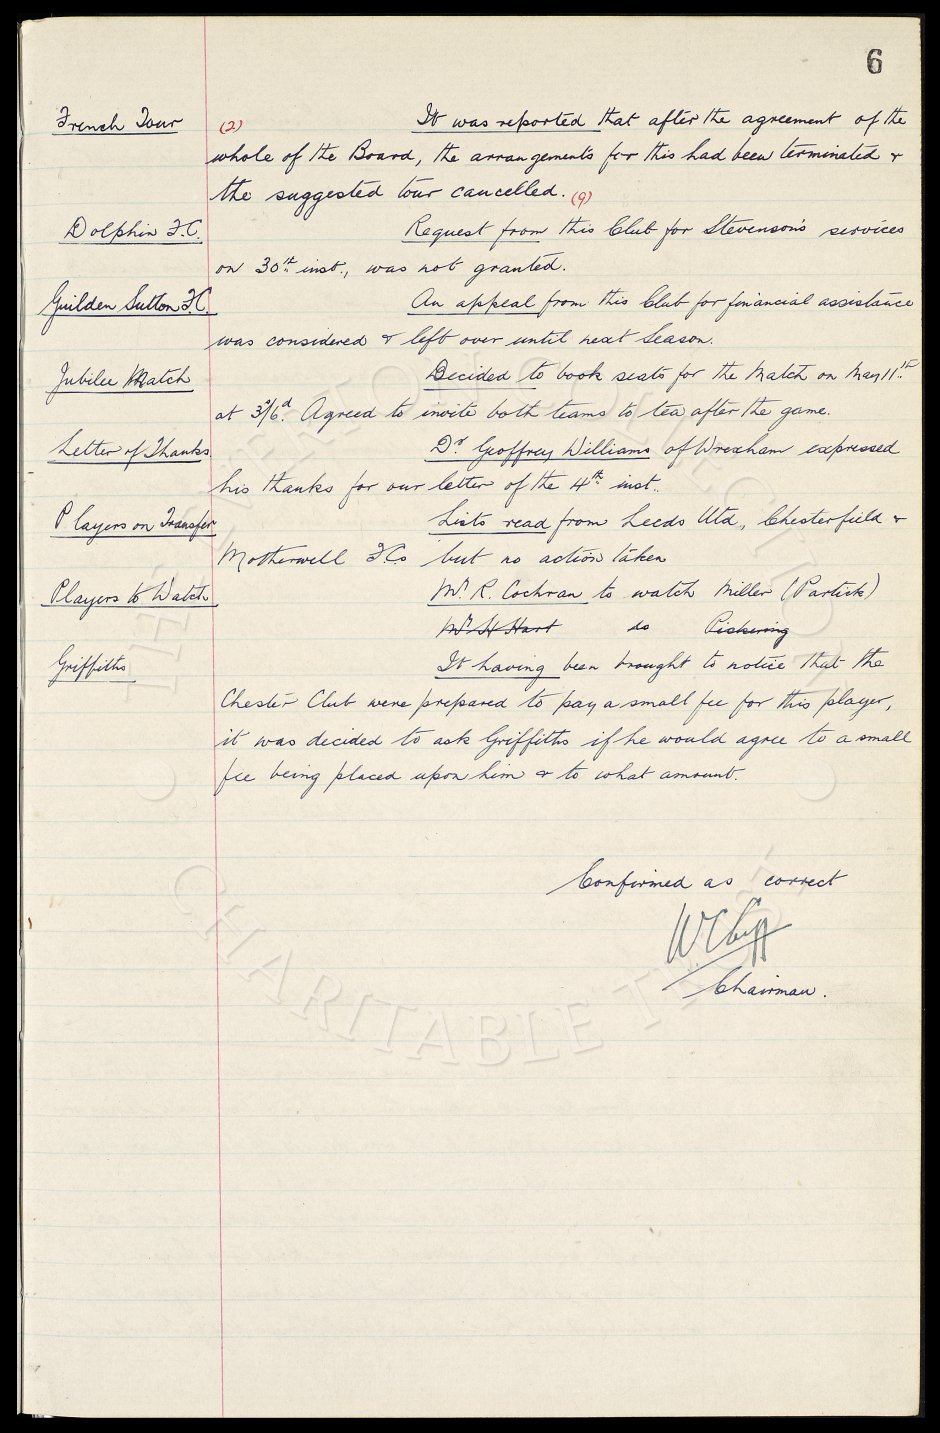 6
French Tour (2) It was reported that after the agreement of the
whole of the Board, the arrangements for this had been terminated &
the suggested tour cancelled. (9)
Dolphin F.C. Request from this Club for Stevenson's services
on 30th inst., was not granted.
Guilden Sutton F.C. An appeal from this Club for financial assistance
was considered & left over until next Season.
Jubilee Match Decided to book seats for the Match on May 11th
at 3s/6d. Agreed to invite both teams to tea after the game.
Letter of Thanks Dr. Geoffrey Williams of Wrexham expressed
his thanks for our letter of the 4th inst.
Players on Transfer Lists read from Leeds Utd, Chesterfield &
Motherwell F.Cs but no action taken
Players to Watch Mr. R. Cochran to watch Miller (Partick)
Mr H Hart do Pickering
Griffiths It having been brought to notice that the
Chester Club were prepared to pay a small fee for this player,
it was decided to ask Griffiths if he would agree to a small
fee being placed upon him & to what amount.
Confirmed as correct
W C Cuff
Chairman.
THE EVERTON COLLECTION
CHARITABLE TRUST